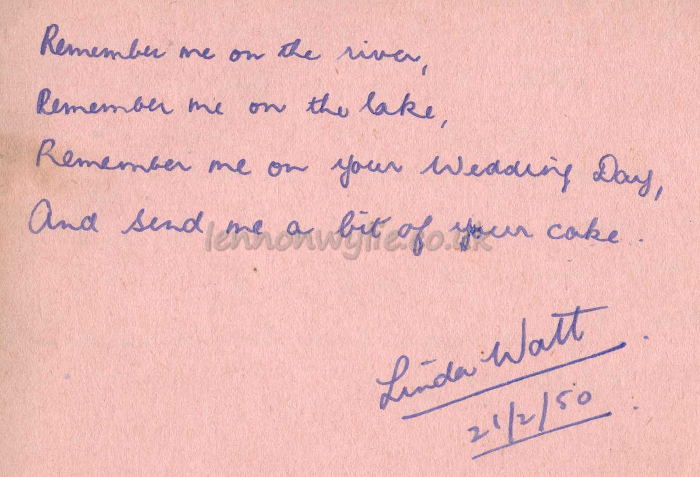 Remember me on the river,
Remember me on the lake,
Remember me on your Wedding Day,
And send me a bit of your cake.
lennonwylie.co.uk
Linda Watt.
21/2/50.